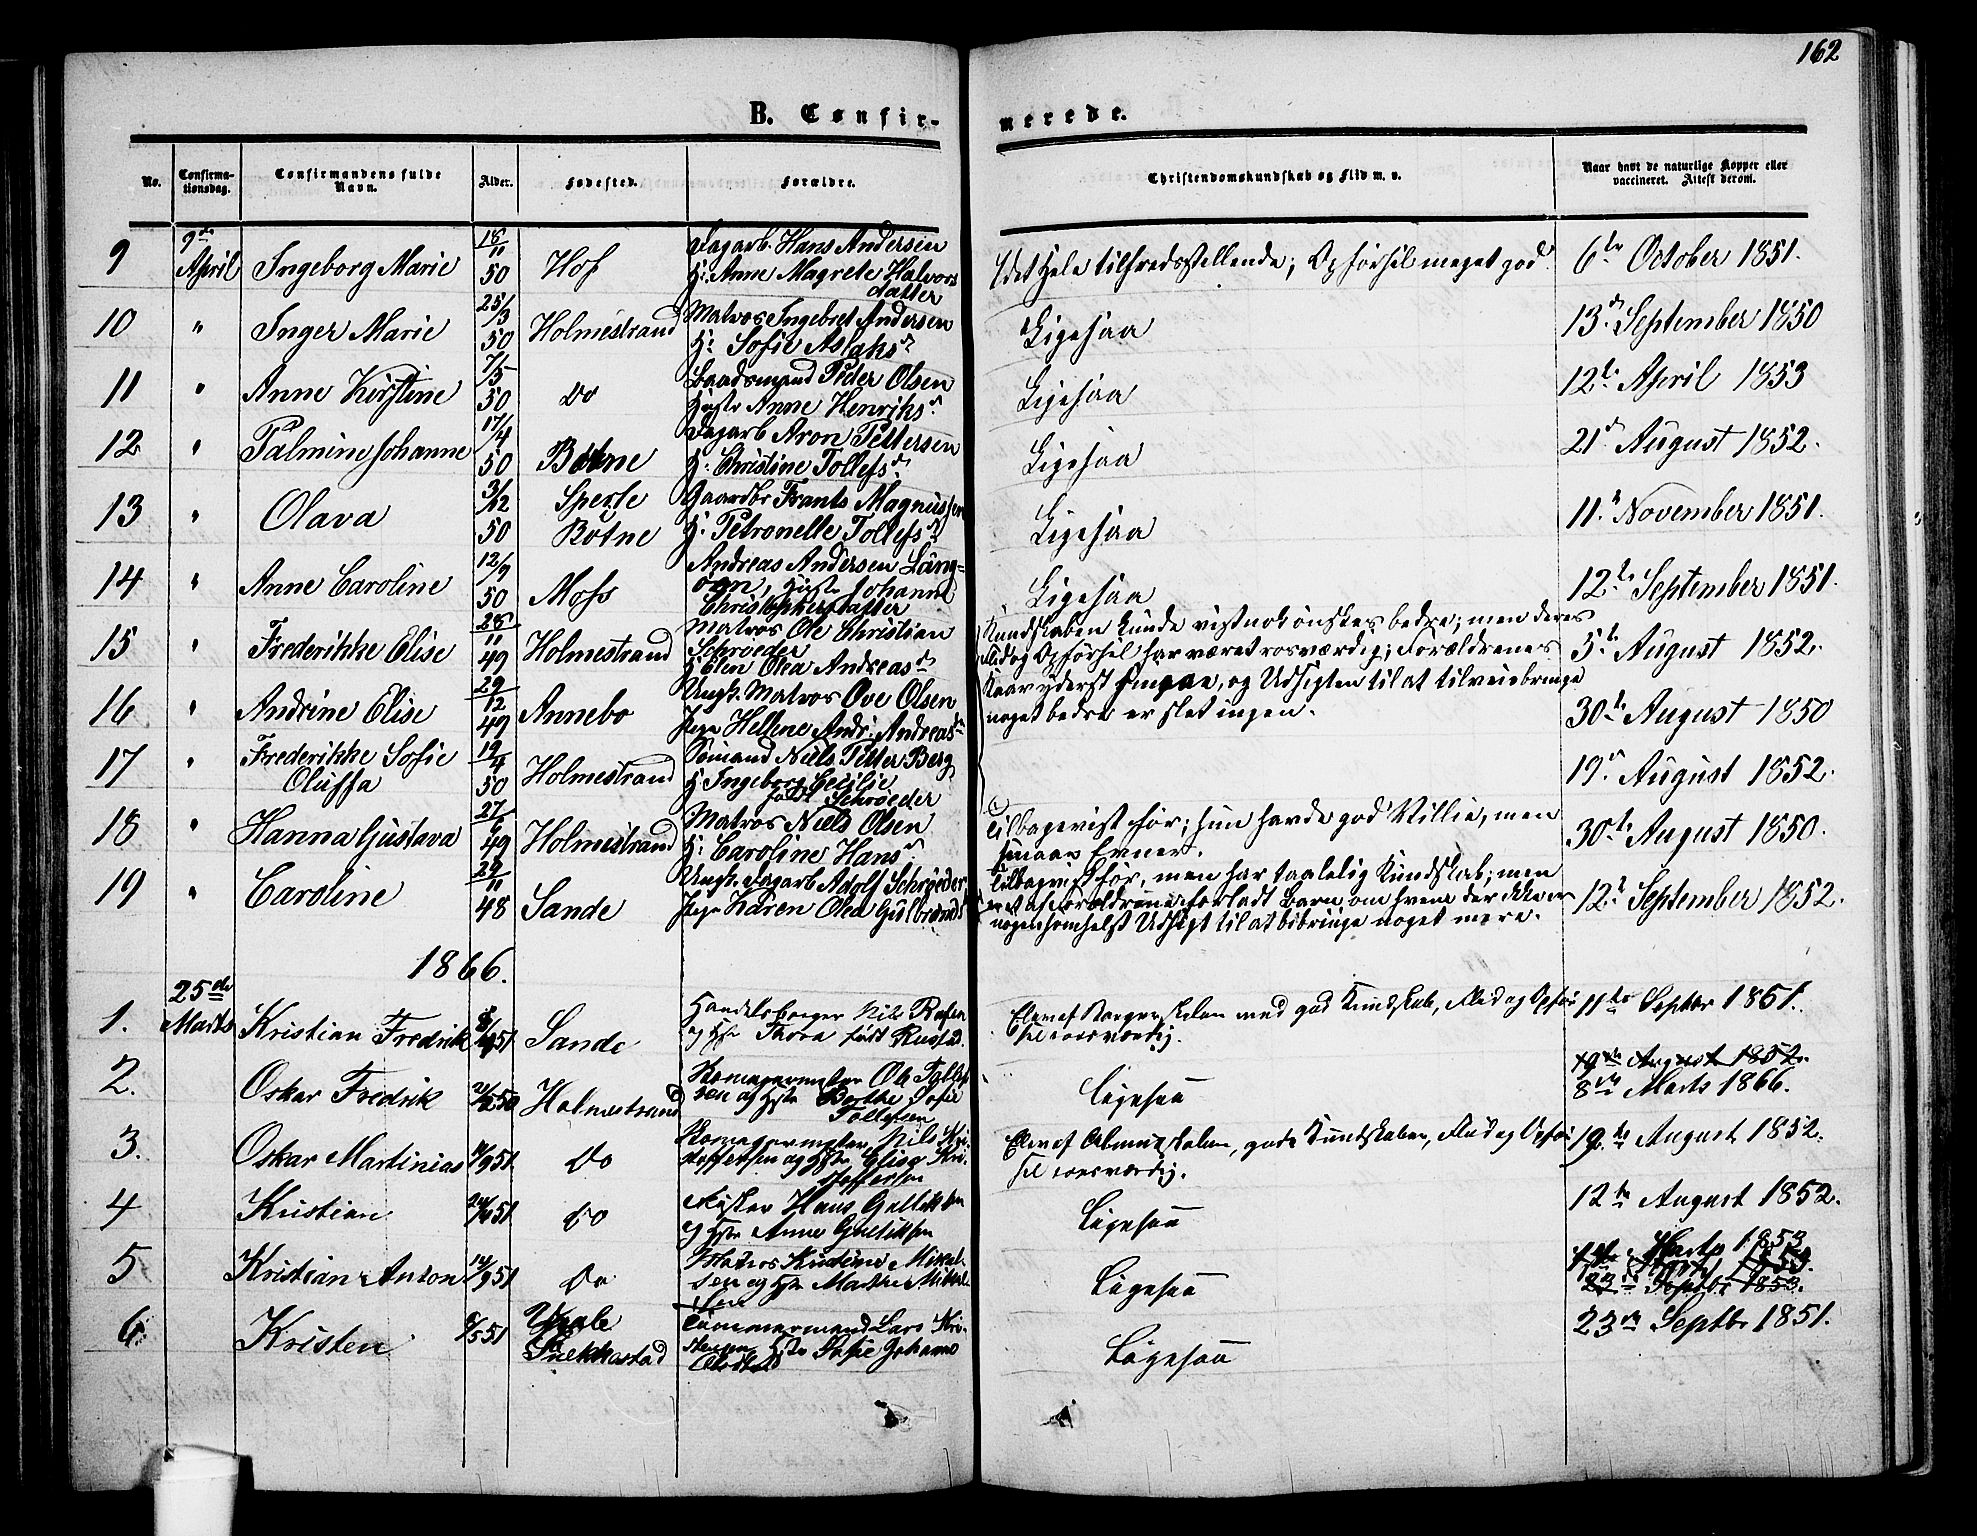 162
B. Confirmerede.
No.
Confirma-
tionsdag.
Confirmandens fulde
Navn.
Alder.
Fødested.
Forældre.
Christendomskundskab og Flid m. v.
Naar havt de naturlige Kopper eller
vaccineret. Attest derom.
9 9de April Ingeborg Marie 18/11 50 Hof Dagarb. Hans Andersen
H: Anne Magrete Halvors
datter
I det Hele tilfredsstillende; Opførsel meget god. 6te October 1851.
10 " Inger Marie 25/3 50 Holmestrand Matros Ingebret Andersen
H: Sofie Aslaksd.
Ligesaa 13d. September 1850
11 " Anne Kirstine 7/5 50 do Baadsmand Peder Olsen
Hustr Anne Henriksd.
Ligesaa 12te April 1853
12 " Palmine Johanne 17/4 50 Botne Dagarb Aron Pettersen
H: Christine Tollefsd.
Ligesaa 21d August 1852.
13 " Olava 3/12 50 Sperle
Botne Gaardbr Frants Magnussen
H: Petronelle Tollefsd.
Ligesaa 11. November 1851.
14 " Anne Caroline 12/9 50 Moss Andreas Andersen Lang-
, Hustr. Johanne
Christophersdatter
Ligesaa 12te September 1851.
15 " Frederikke Elise 28/11 49 Holmestrand Matros Ole Christian
Schrøder
H Elen Olea Andreasd.
Kundskaben kunde vistnok ønskes bedre; men deres
Flid og Opførsel har været rosværdig; Forældrenes
Kaar yderst ringe, og Udsigten til at tilveiebringe
noget bedre er slet ingen.
5te August 1852.
16 " Andrine Elise 29/12 49 Annebo Ungk. Matros Ove Olsen
Pige Hellene Andr: Andreasd.
30te August 1850
17 " Frederikke Sofie
Oluffa 19/4 50 Holmestrand Sømand Niels Petter Berg
H Ingeborg Cecilie
født Schrøeder
19d August 1852.
18 " Hanna Gustava 27/6 49 Holmestrand Matros Niels Olsen
H: Caroline Hansd.
Tilbagevist før; hun havde god Villie, men
smaa Evner.
30te August 1850.
19 " Caroline 29/11 48 Sande Ungk. Dagarb Adolf Schrøeder
Pige Karen Olea Gulbrandsd.
Tilbagevist før, men har taalelig Kundskab; men
et af Forældrene forladt Barn om hvem der ikke er
nogensomhelst Udsigt til at bibringe noget mere.
12te September 1852.
1866.
1. 25de Marts Kristian Fredrik Sande Handelsborger Nils
og Hstr Thora født Rustad.
Elev af Borgerskolen med god Kundskab, Flid og Opfør-
sel rosværdig.
11te Septbr 1851.
2. Oskar Fredrik Holmestrand Skomagermester Ole Tollef
sen og Hstr Berthe Sofie
Tollefsen
Ligesaa 19de August 1852.
8de Marts 1866.
3. Oskar Martinias 951 Do Skomagermester Nils Kri-
stoffersen og Hstr Elise Kri-
stoffersen
Elev af Almueskolen, gode Kundskaber, Flid og Opfør-
sel rosværdig.
19de August 1852.
4 Kristian Do Hans Gulliksen
og Hstr Anne Gulliksen
Ligesaa 12te August 1852.
5 Kristian Anton 14/951 Do Matros Mikal-
sen og Hstr Marthe Mikal
sen
Ligesaa Marts 1853
23de Septbr 1853.
6. Kristen 8/551 Tømmermand Lars Kri-
stensen Hstr Sofie Johanne
Ligesaa 23de Septbr 1851.